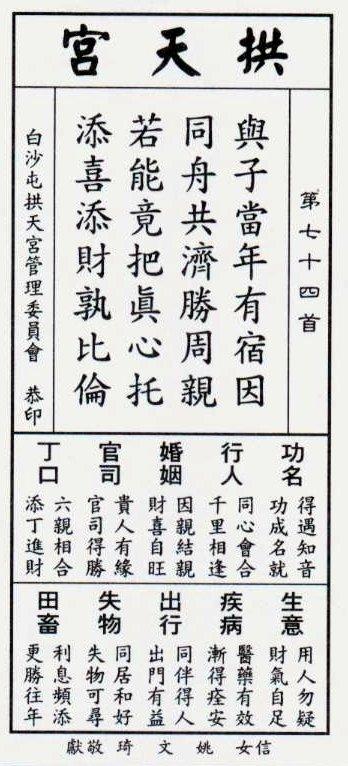 拱天宮
第七十四首
與子當年有宿因
同舟共濟勝周親
若能竟把眞心托
添喜添財孰比倫
白沙屯拱天宮管理委員會 恭印
功名
得遇知音
功成名就
行人
同心會合
千里相逢
婚姻
因親結親
財喜自旺
官司
貴人有緣
官司得勝
丁口
六親相合
添丁進財
生意
用人勿疑
財氣自足
疾病
醫藥有效
漸得痊安
出行
同伴得人
出門有益
失物
同居和好
失物可尋
田畜
利息頻添
更勝往年
信女 姚文琦 敬獻